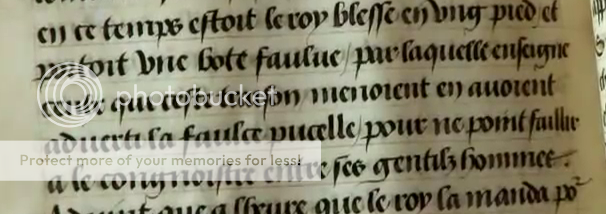 en ce temps estoit le roy blesse en vng pied et
portoit vne bote faulue / par laquelle enseigne
ceulx que menoient en auoient
photobucket
aduerti la faulce pucelle / pour ne point faillir
Protect more of your memories for less!
a le congnoistre entre ses gentilz hommes.
que a lheure que le roy la manda po